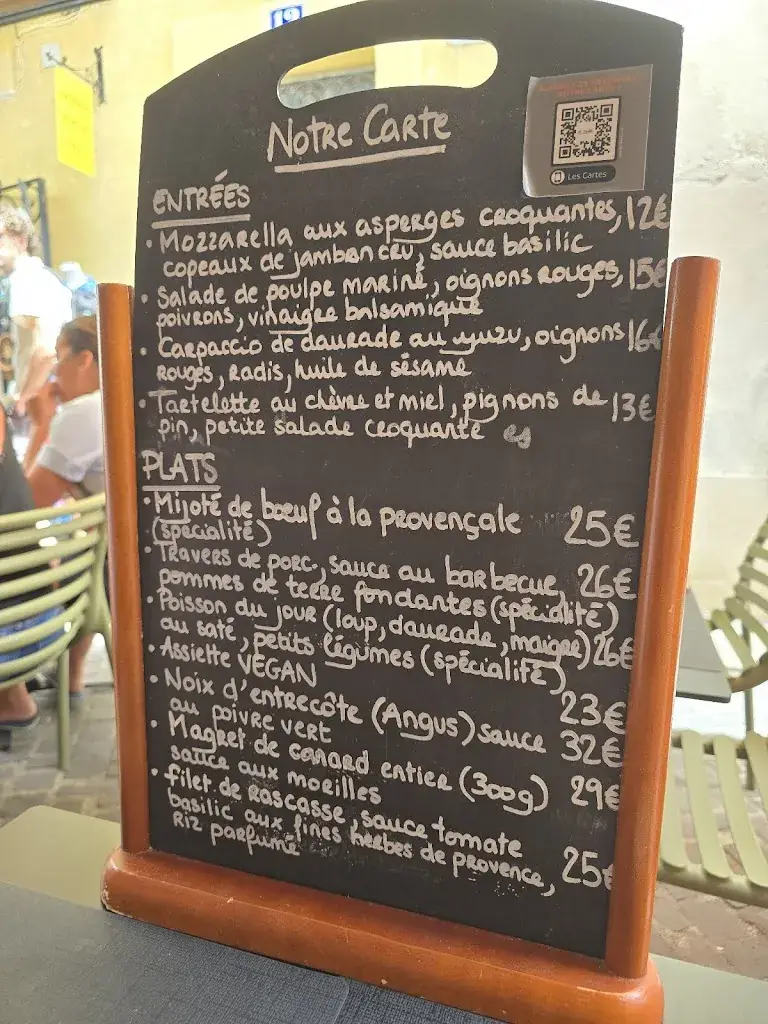 19
Notre Carte
Les Cartes
ENTRÉES
• Mozzarella aux asperges croquantes, 12€
copeaux de jambon cru, sauce basilic
• Salade de poulpe mariné, oignons rouges, 15€
poivrons, vinaigre balsamique
• Carpaccio de daurade au yuzu, oignons 16€
rouges, radis, huile de sésame
• Tartelette au chèvre et miel, pignons de 13€
pin, petite salade croquante
PLATS
• Mijoté de bœuf à la provençale 25€
(spécialité)
• Travers de porc, sauce au barbecue, 26€
pommes de terre fondantes (spécialité)
• Poisson du jour (loup, daurade, maigre) 26€
au saté, petits légumes (spécialité)
• Assiette VEGAN 23€
• Noix d'entrecôte (Angus) sauce 32€
au poivre vert
• Magret de canard entier (300g) 29€
sauce aux morilles
• Filet de rascasse, sauce tomate
basilic aux fines herbes de provence, 25€
Riz parfumé